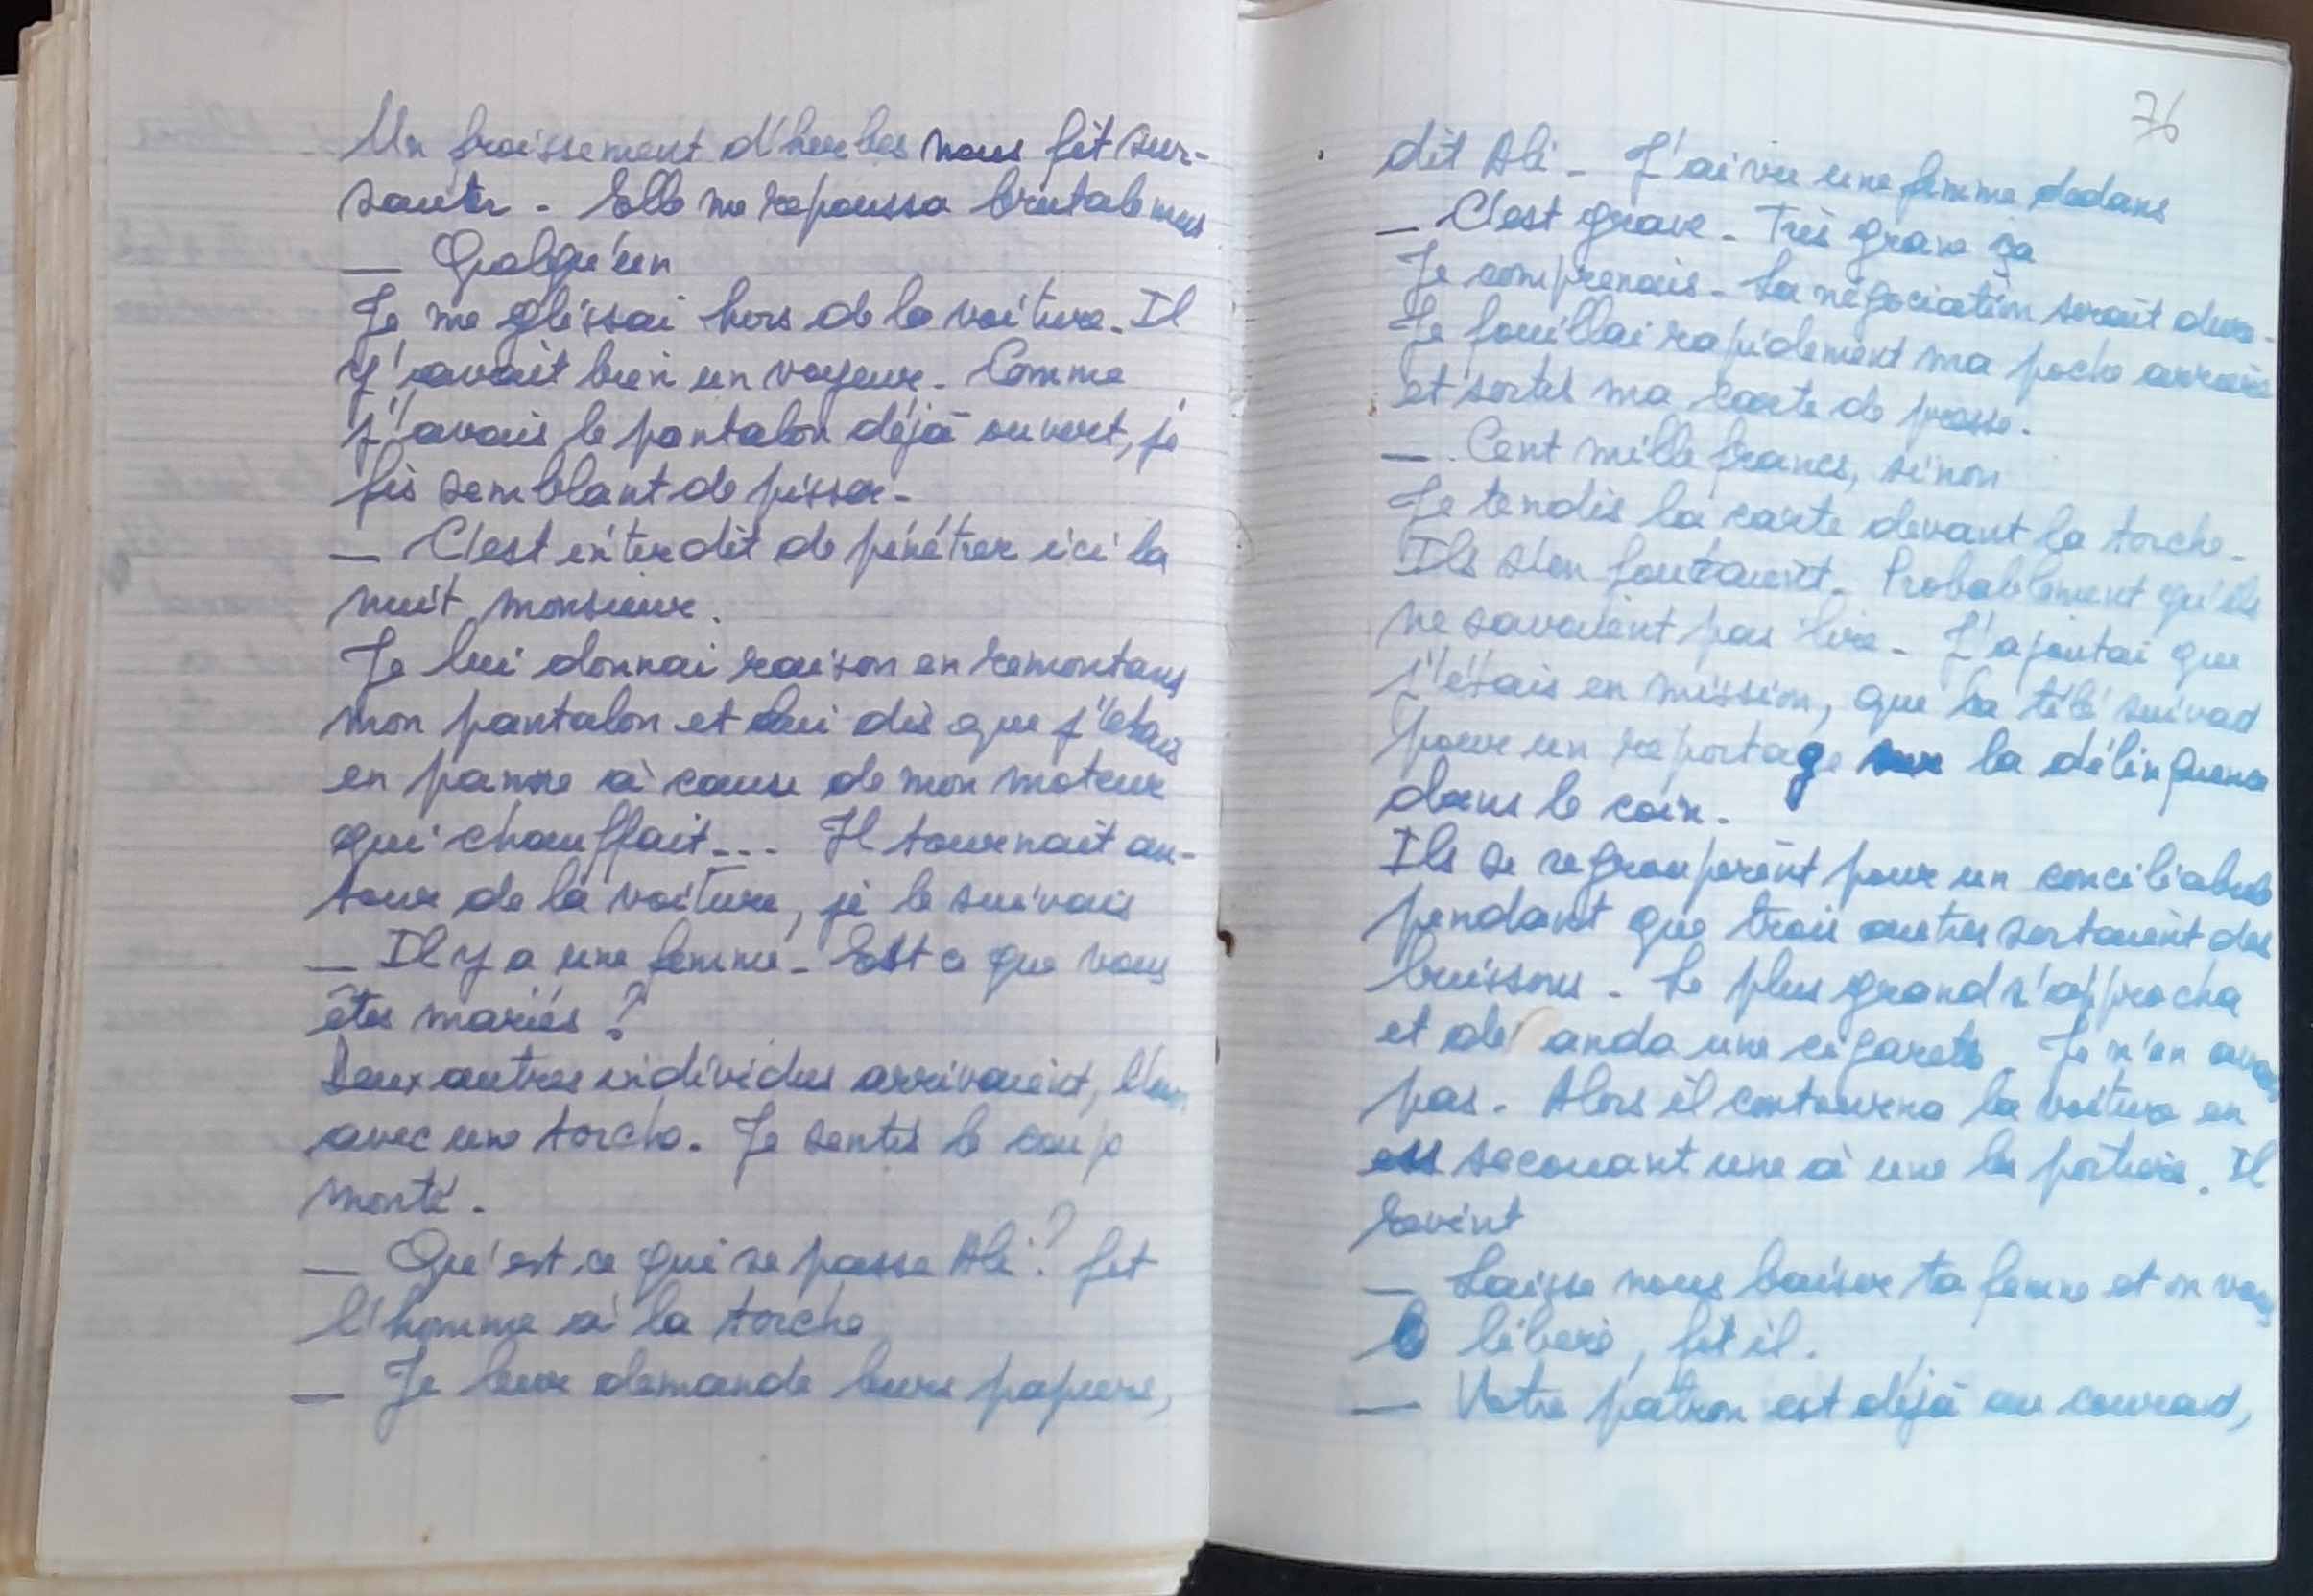 Un froissement d'herbes nous fit sur-
sauter - Elle me repoussa brutalement
— Quelqu'un
Je me glissai hors de la voiture. Il
y avait bien un voyeur. Comme
j'avais le pantalon déjà ouvert, je
fis semblant de pisser -
— C'est interdit de pénétrer ici la
nuit, monsieur.
Je lui donnai raison en remontant
mon pantalon et lui dis que j'étais
en panne à cause de mon moteur
qui chauffait... Il tournait au-
tour de la voiture, je le suivais
— Il y a une femme - Est ce que vous
êtes mariés ?
Deux autres individus arrivaient, l'un
avec une torche. Je sentis le coup
monté.
— Qu'est ce qui se passe Ali ? fit
l'homme à la torche
— Je leur demande leurs papiers,
76
dit Ali - J'ai vu une femme dedans
— C'est grave - Très grave ça
Je comprenais - La négociation serait dure -
Je fouillai rapidement ma poche arrière
et sortis ma carte de presse.
— Cent mille francs, sinon
Je tendis la carte devant la torche -
Ils s'en foutaient - Probablement qu'ils
ne savaient pas lire - J'ajoutai que
j'étais en mission, que la télé suivait
pour un reportage sur la délinquance
dans le coin -
Ils se regroupèrent pour un conciliabule
pendant que trois autres sortaient des
buissons - Le plus grand s'approcha
et de anda une cigarette. Je n'en avais
pas - Alors il contourna la voiture en
en secouant une à une les portières. Il
revint
— Laisse nous baiser ta femme et on vous
libère, fit il.
— Votre patron est déjà au courant,